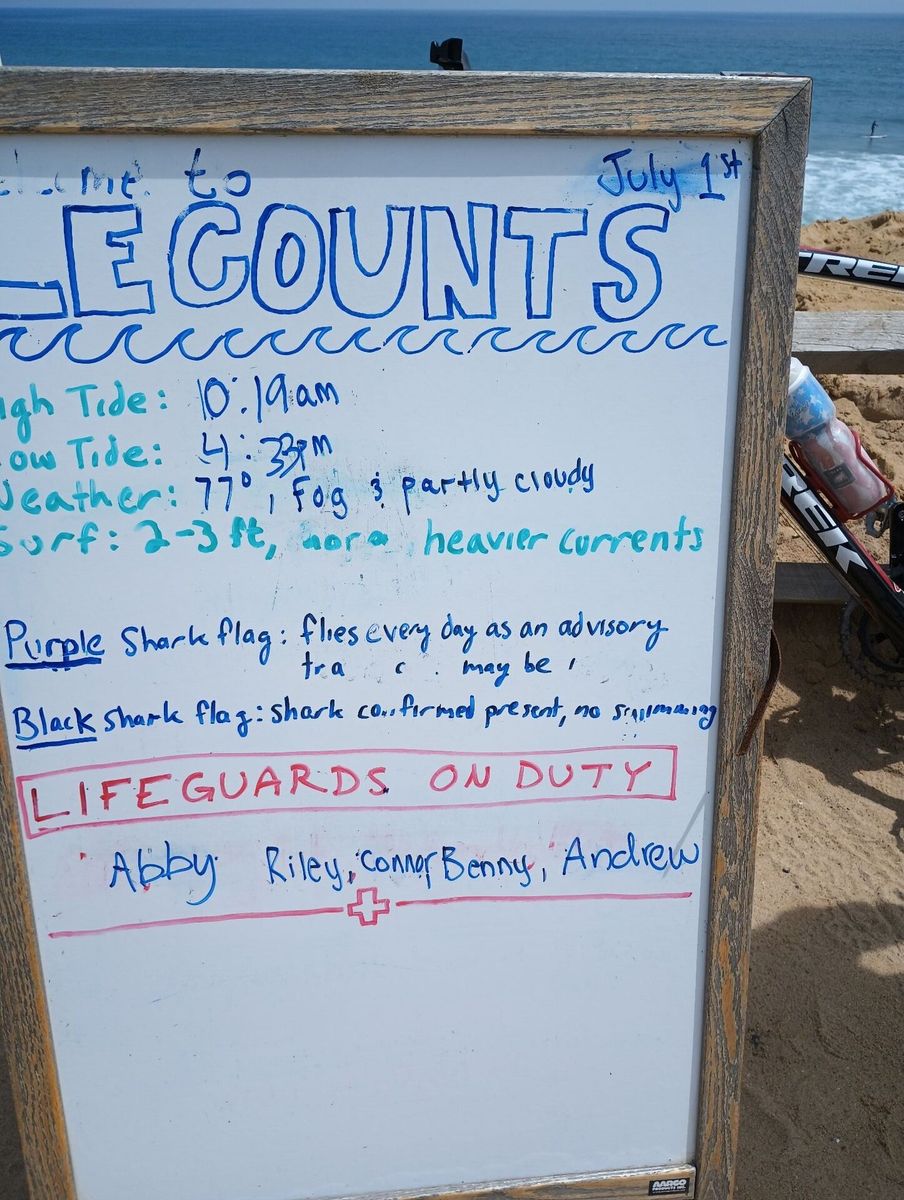 to
July 1st
LECOUNTS
igh Tide: 10:19am
ow Tide: 4:33pm
Weather: 77°, Fog & partly cloudy
Surf: 2-3ft, heavier currents
Purple Shark flag: flies every day as an advisory
may be
Black shark flag: shark confirmed present, no swimming
LIFEGUARDS ON DUTY
Abby Riley, Connor, Benny, Andrew
TREK
TREK
AARCO
PRODUCTS INC.